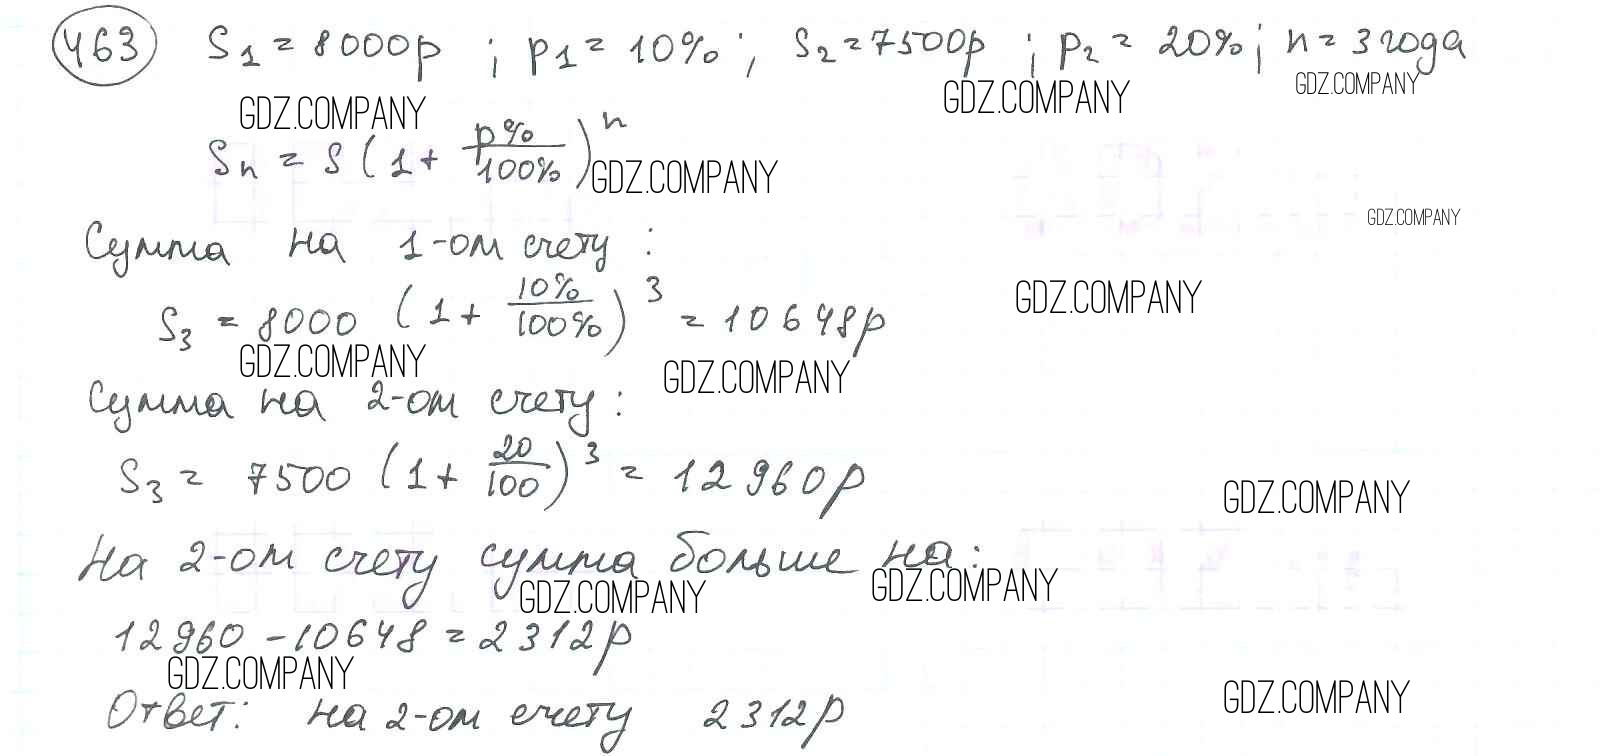 463 S₁ = 8000р ; p₁ = 10% ; S₂ = 7500р ; p₂ = 20% ; n = 3 года
GDZ.COMPANY GDZ.COMPANY GDZ.COMPANY
Sₙ = S (1 + p%/100%)ⁿ
GDZ.COMPANY
GDZ.COMPANY
Сумма на 1-ом счету :
GDZ.COMPANY
S₃ = 8000 (1 + 10%/100%)³ = 10648р
GDZ.COMPANY GDZ.COMPANY
Сумма на 2-ом счету :
S₃ = 7500 (1 + 20/100)³ = 12960р
GDZ.COMPANY
На 2-ом счету сумма больше на :
GDZ.COMPANY GDZ.COMPANY
12960 - 10648 = 2312р
GDZ.COMPANY GDZ.COMPANY
Ответ: на 2-ом счету 2312р